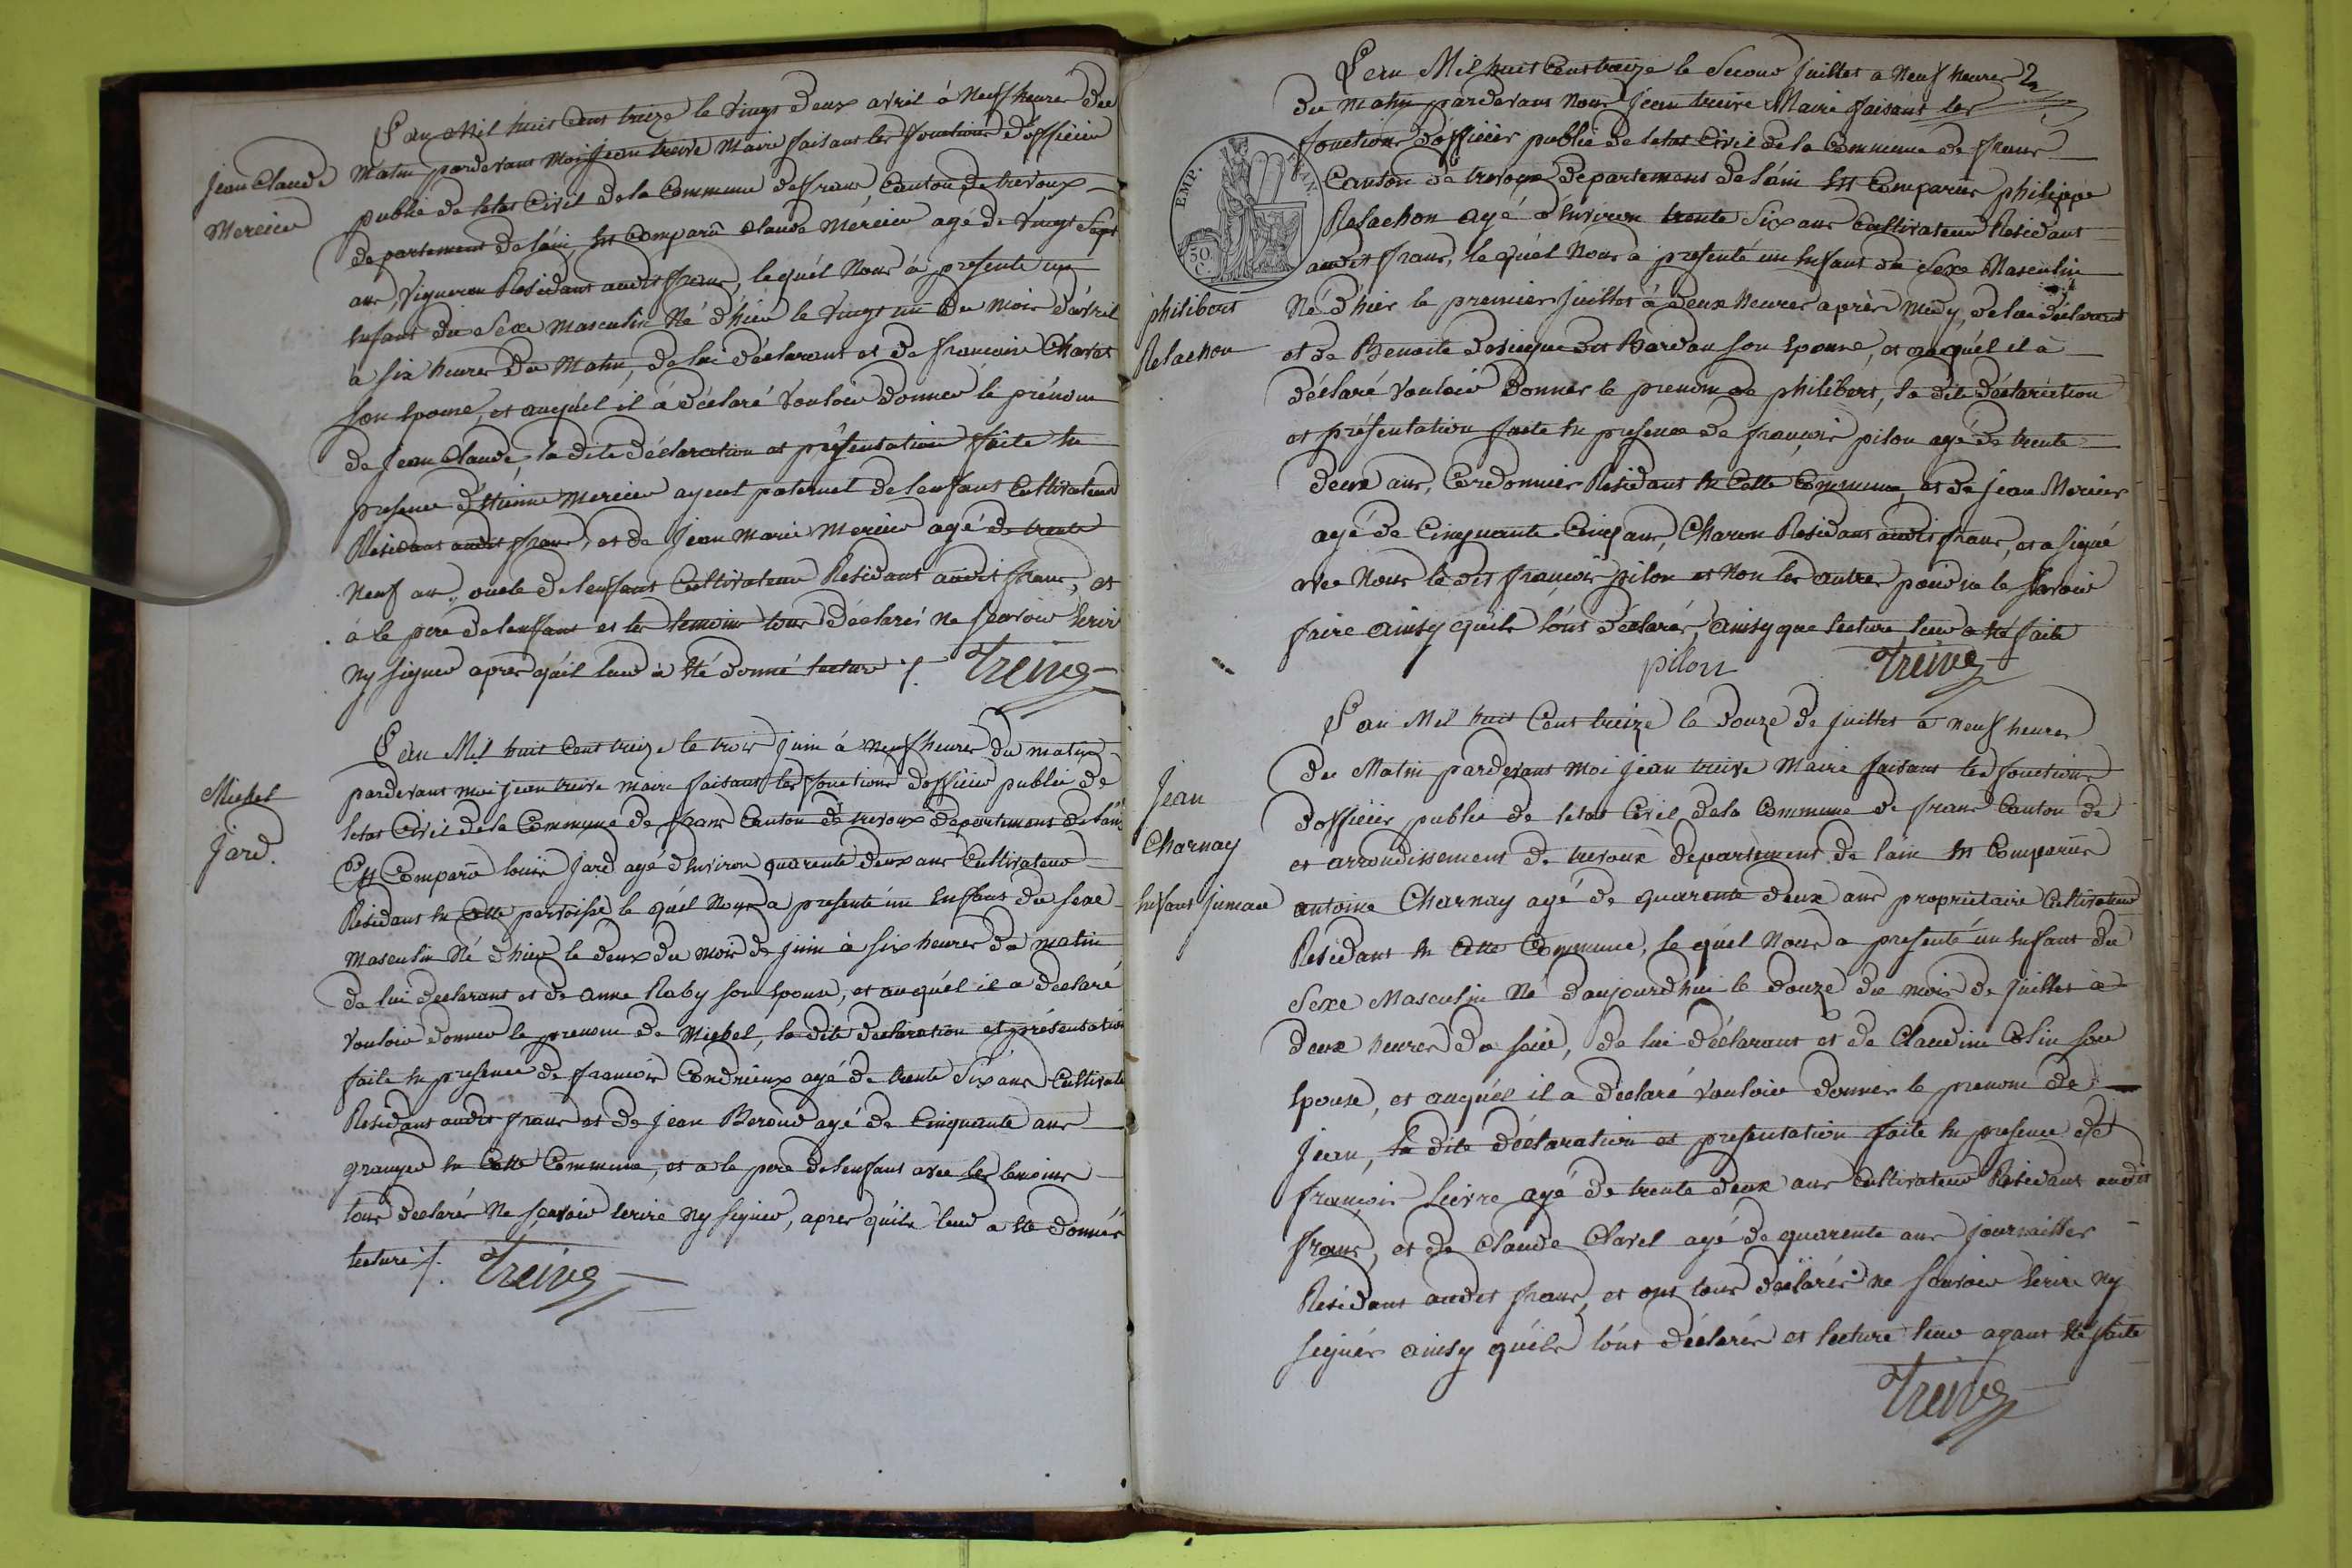 L'an Mil huit Cent treize le vingt deux avril à Neuf heures du
Jean Claude
Mercier
Matin pardevant moi Jean treive Maire faisant les fonctions d'officier
public de letat Civil de la Commune de frans, Canton de trevoux
departement de láin, Est Comparû Claude Mercier agé de vingt Sept
ans, Vigneron Residant audit frans, lequél Nous à presenté un
Enfant du Sexe masculin Né d'hier le vingt un du mois d'avril
à six heures du Matin, de lui déclarant et de francoise Charles
son Epouse, et auquél il á déclaré vouloir donner le prénom
de Jean Claude, la dite déclaration et présentation faite En
presence d'Etienne Mercier ayeul paternel de lenfant Cultivateur
Residant audit frans, et de Jean Marie Mercier agé de trente
Neuf ans oncle de lenfant Cultivateur Residant audit frans, et
à le pere de lenfant et les temoins tous déclarés ne scavoir Ecrire
Ny signer après qúil leur à Eté donné lecture ./. Treive
L'an Mil huit Cent treize le trois juin à Neuf heures du matin
Michel
Jard.
pardevant moi jean treive maire faisant les fonctions d'officier public de
letat Civil de la Commune de frans Canton de trevoux departement de láin
Est Comparû louis Jard agé d'Environ quarente deux ans Cultivateur
Residant En Cette paroisse le quél Nous a presenté un Enfant du sexe
masculin Né d'hier le deux du mois de juin à six heures du matin
de lui declarant et de anne Raby son Epouse, et auquél il a declaré
vouloir donner le prenom de Michel, la dite declaration et présentation
faite En presence de francois Condrieux agé de trente Six ans Cultivate
Residant audit frans et de Jean Beroud agé de Cinquante ans
granger En Cette Commune, et a le pere de lenfant avec les temoins
tous declarés Ne scavoir Ecrire Ny signer, apres qúils leur a Eté donnér
lecture ./. Treive
L'an Mil huit Cent treize le Second Juillet a Neuf heures 2
du matin pardevant Nous Jean treive Maire faisant les
fonctions d'officier public de letat Civil de la Commune de frans
EMP. FRAN.
50
C.
Canton de trevoux departement de láin Est Comparûs philippe
Relachon agé d'Environ trente Six ans Cultivateur Residant
audit frans, le quél Nous à presenté un Enfant du Sexe Masculin
philibert
Relachon
Né d'hier le premier juillet à deux heures après midy, de lui déclarant
et de Benoite dit Bardau son Epouse, et auquél il à
déclaré vouloir donner le prenom de philibert, la dite déclaration
et présentation faite En presence de francois pilon agé de trente
deux ans, Cordonnier Residant En Cette Commune, et de jean Mercier
agé de Cinquante Cinq ans, Charon Residant audit frans, et a signé
avec Nous le dit francois pilon et Non les autres pour ne le scavoir
faire ainsy qúils lónt déclarés, ainsy que lecture leur a Eté faite
pilon Treive
L'an Mil huit Cent treize le douze de juillet à neuf heures
Jean
Charnay
Enfant jumeau
du Matin pardevant moi jean treive Maire faisant les fonctions
dofficier public de letat Civil de la Commune de frans Canton de
et arrondissement de trevoux département de láin Est Comparûs
antoine Charnay agé de quarente deux ans proprietaire Cultivateur
Residant En Cette Commune, le quél Nous a presenté un Enfant du
Sexe Masculin Né daujourd'hui le douze du mois de juillet à
deux heures du soir, de lui déclarant et de Claudine Colin son
Epouse, et auquél il a déclaré vouloir donner le prenom de
Jean, la dite déclaration et presentation faite En presence de
francois Lievre agé de trente deux ans Cultivateur Residant audit
frans, et de Claude Clavel agé de quarente ans journaillier
Residant audit frans, et ont tous déclarés ne scavoir Ecrire Ny
signér ainsy qúils lónt déclarés et lecture leur ayant Eté faite
Treive